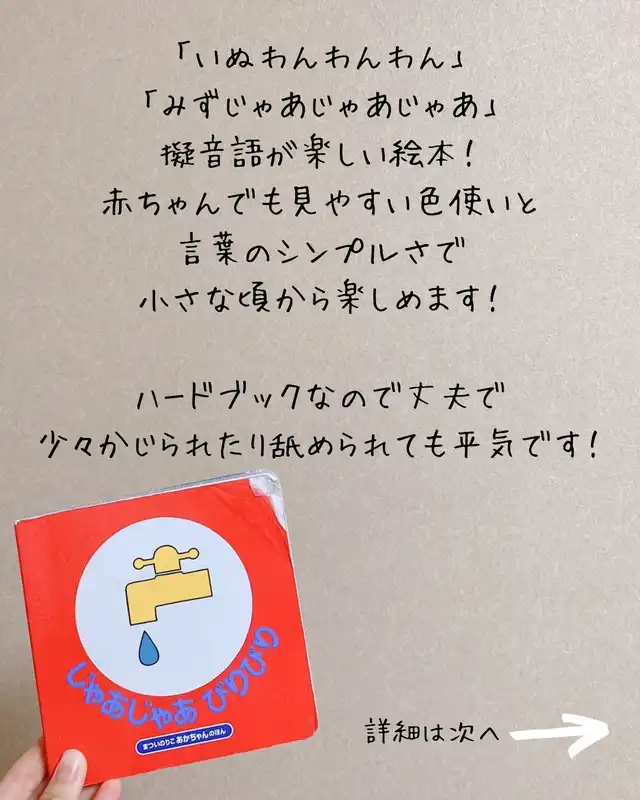 「いぬわんわんわん」
「みずじゃあじゃあじゃあ」
擬音語が楽しい絵本!
赤ちゃんでも見やすい色使いと
言葉のシンプルさで
小さな頃から楽しめます!
ハードブックなので丈夫で
少々かじられたり舐められても平気です!
じゃあじゃあ びりびり
まついのりこ あかちゃんのほん
詳細は次へ